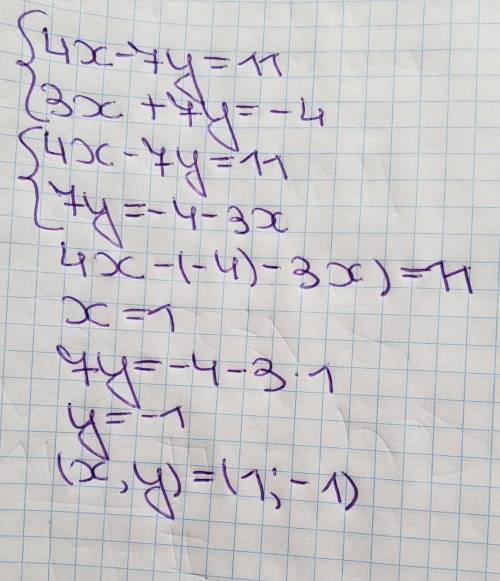 4x-7y=11
3x+7y=-4
4x-7y=11
7y=-4-3x
4x-(-4)-3x)=11
x=1
7y=-4-3·1
y=-1
(x,y)=(1;-1)